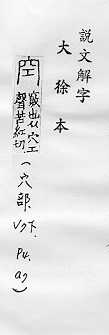 說文解字
大徐本
空 竅也从穴工
聲苦紅切.(穴部. V.7下. pu. a9)